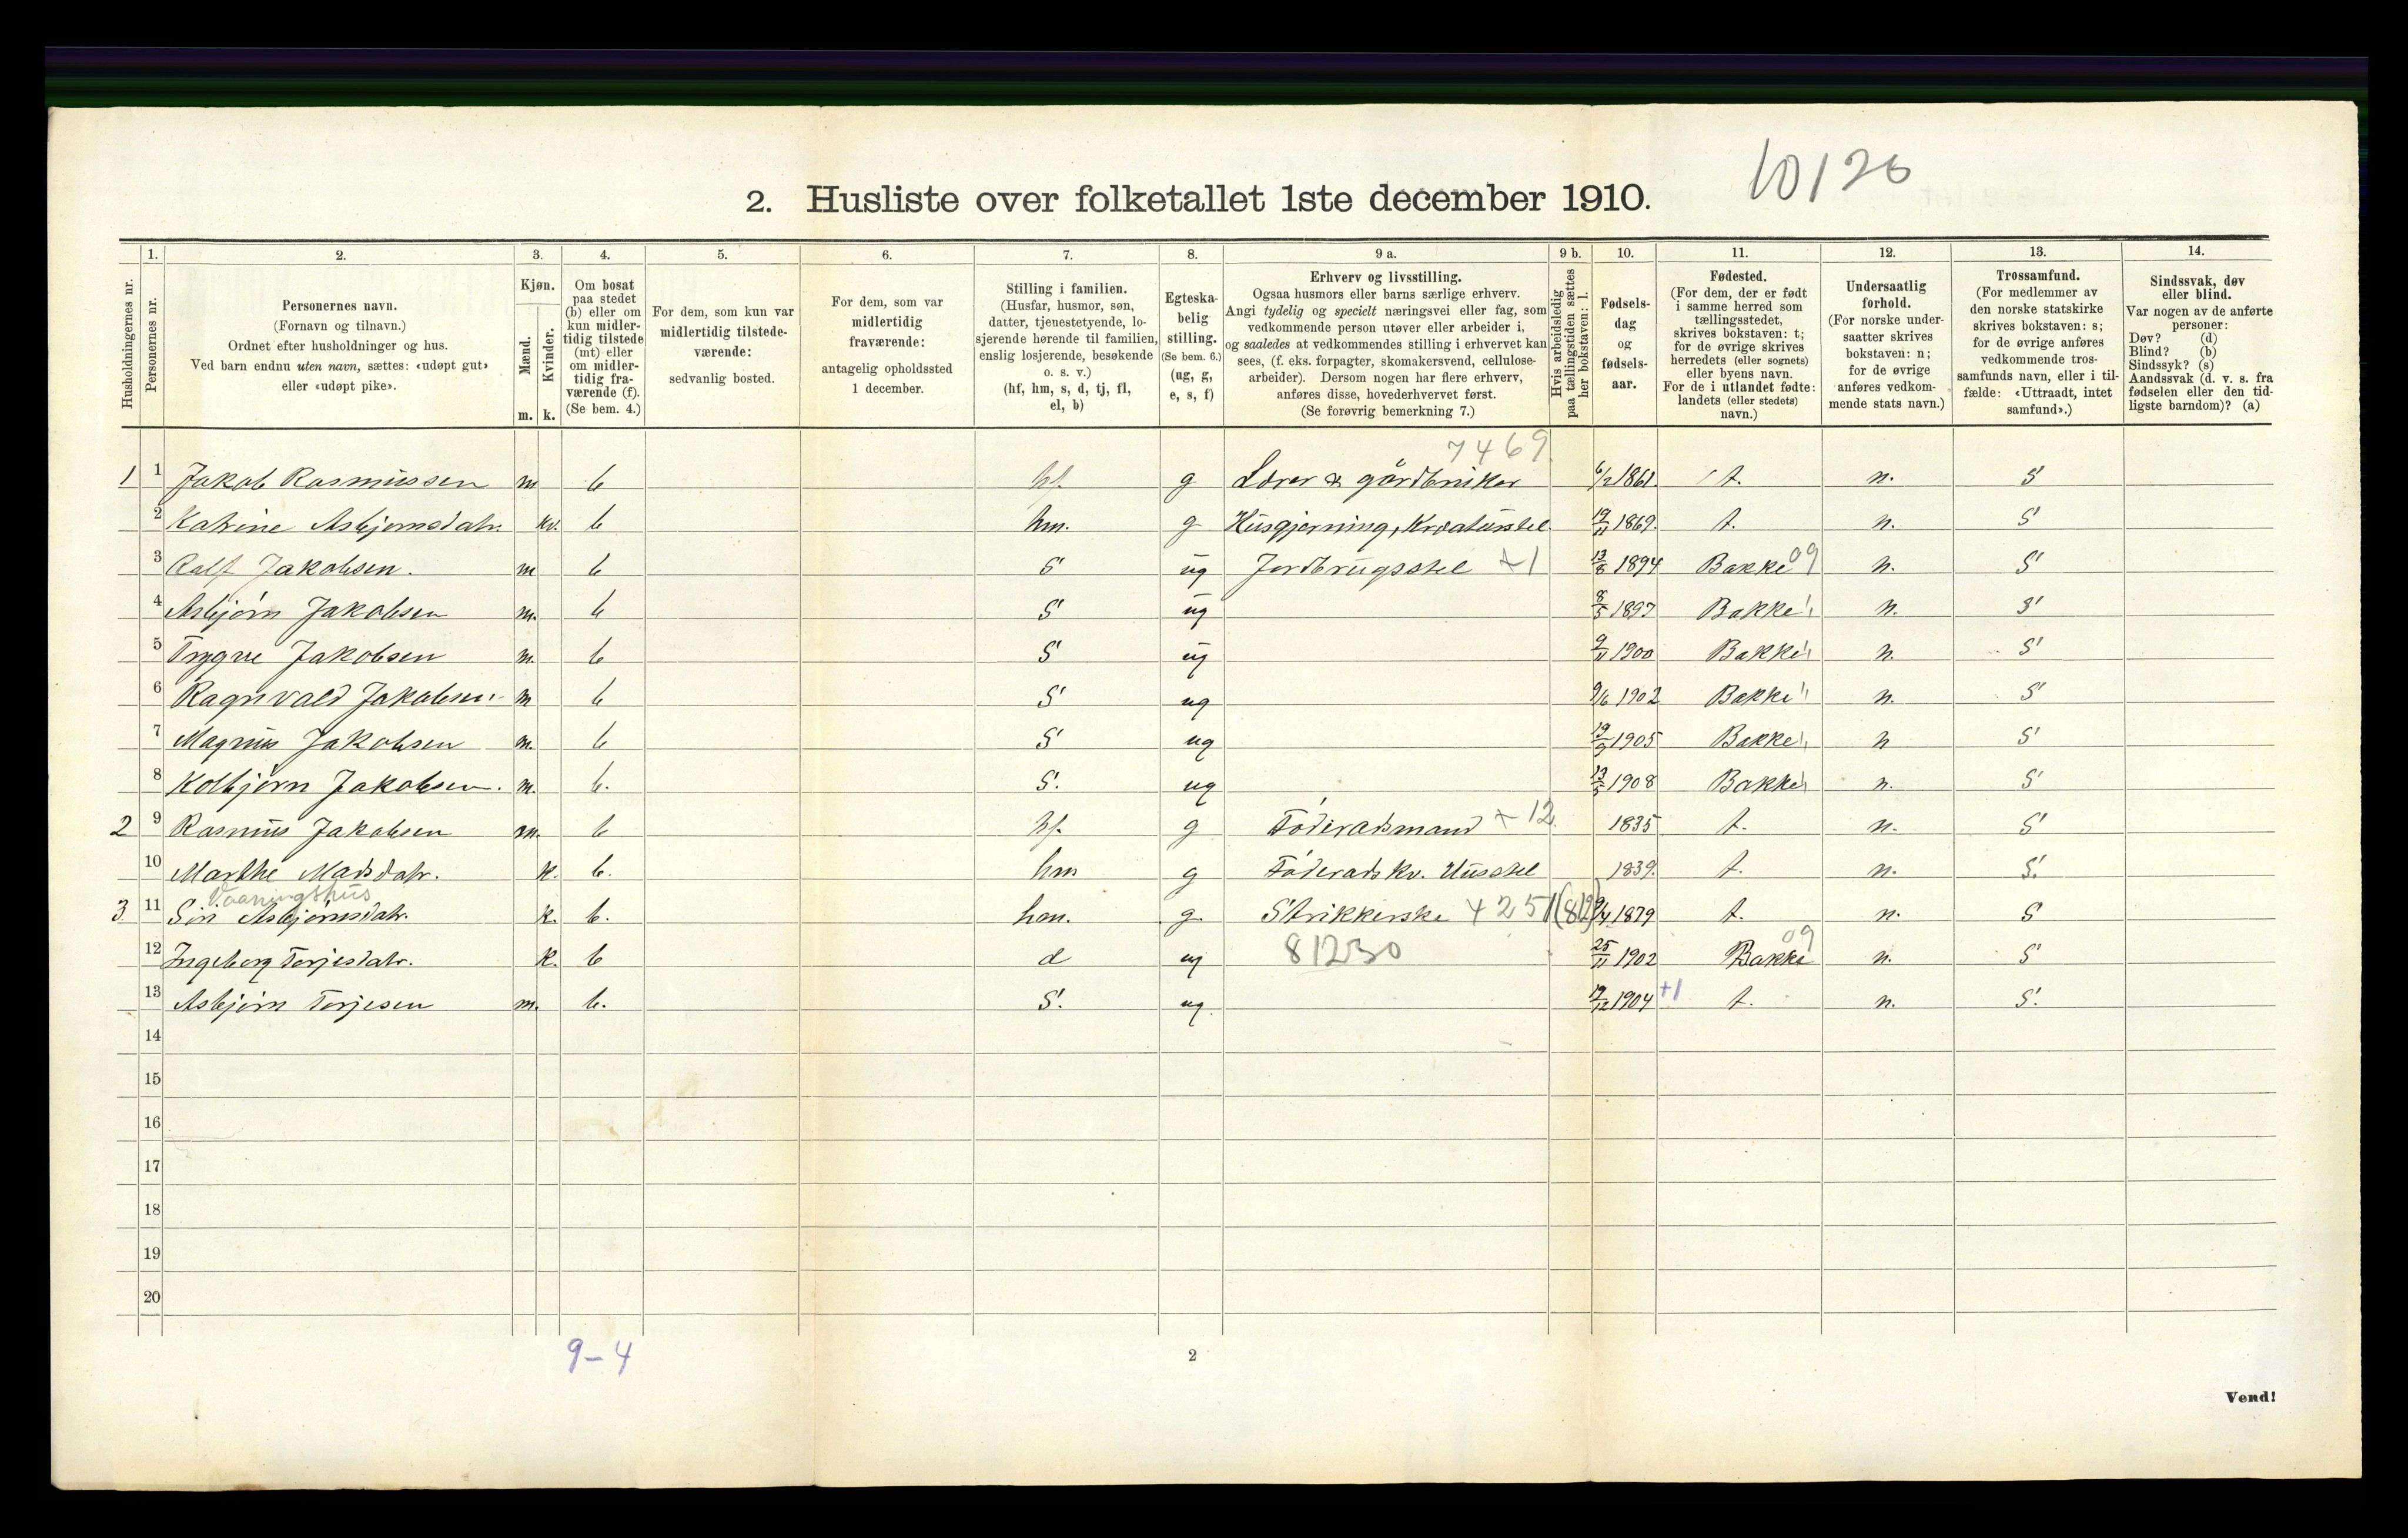 10120
2. Husliste over folketallet 1ste december 1910.
Husholdningernes nr.
1. Personernes nr.
2. Personernes navn. (Fornavn og tilnavn.) Ordnet efter husholdninger og hus. Ved barn endnu uten navn, sættes: «udøpt gut» eller «udøpt pike».
3. Kjøn. Mænd. m. Kvinder. k.
4. Om bosat paa stedet (b) eller om kun midlertidig tilstede (mt) eller om midlertidig fraværende (f). (Se bem. 4.)
5. For dem, som kun var midlertidig tilstedeværende: sedvanlig bosted.
6. For dem, som var midlertidig fraværende: antagelig opholdssted 1 december.
7. Stilling i familien. (Husfar, husmor, søn, datter, tjenestetyende, losjerende hørende til familien, enslig losjerende, besøkende o. s. v.) (hf, hm, s, d, tj, fl, el, b)
8. Egteskabelig stilling. (Se bem. 6.) (ug, g, e, s, f)
9 a. Erhverv og livsstilling. Ogsaa husmors eller barns særlige erhverv. Angi tydelig og specielt næringsvei eller fag, som vedkommende person utøver eller arbeider i, og saaledes at vedkommendes stilling i erhvervet kan sees, (f. eks. forpagter, skomakersvend, cellulosearbeider). Dersom nogen har flere erhverv, anføres disse, hovederhvervet først. (Se forøvrig bemerkning 7.)
9 b. Hvis arbeidsledig paa tællingstiden sættes her bokstaven: l.
10. Fødselsdag og fødselsaar.
11. Fødested. (For dem, der er født i samme herred som tællingsstedet, skrives bokstaven: t; for de øvrige skrives herredets (eller sognets) eller byens navn. For de i utlandet fødte: landets (eller stedets) navn.)
12. Undersaatlig forhold. (For norske undersaatter skrives bokstaven: n; for de øvrige anføres vedkommende stats navn.)
13. Trossamfund. (For medlemmer av den norske statskirke skrives bokstaven: s; for de øvrige anføres vedkommende trossamfunds navn, eller i tilfælde: «Uttraadt, intet samfund».)
14. Sindssvak, døv eller blind. Var nogen av de anførte personer: Døv? (d) Blind? (b) Sindssyk? (s) Aandssvak (d. v. s. fra fødselen eller den tidligste barndom)? (a)
7469.
1 1 Jakob Rasmussen m b hf. g Lærer & gårdbruker 6/2 1861. t. n. S
2 Katrine Asbjørnsdatr. kv. b hm. g Husgjerning, Kreaturstel 19/11 1869. t. n. S
3 Rolf Jakobsen. m b S ug Jordbrugsstel +1 13/8 1894 Bakke 09 n. S
4 Asbjørn Jakobsen m. b S ug 8/5 1897 Bakke " n. S
5 Trygve Jakobsen m. b S ug 9/11 1900 Bakke " n. S
6 Ragnvald Jakobsen m b S ug 9/6 1902 Bakke " n. S
7 Magnus Jakobsen m. b S ug 19/9 1905 Bakke " n S
8 Kolbjørn Jakobsen. m. b. S. ug 13/5 1908 Bakke " n. S
2 9 Rasmus Jakobsen m. b hf. g Føderadsmand +12 1835 t. n. S
10 Marthe Madsdatr. k. b. hm g Føderadskv. Husstel 1839. t. n. S.
Vaaningshus
3 11 Siri Asbjørnsdatr. k. b. hm. g. Strikkerske 4251(812) 9/4 1879 t. n. S
12 Ingeborg Torjesdatr. k. b d ug 81230 25/11 1902 Bakke 09 n. S
13 Asbjørn Torjesen m. b. S. ug. 19/12 1904 +1 t. n. S.
14
15
16
17
18
19
20
9-4
2
Vend!